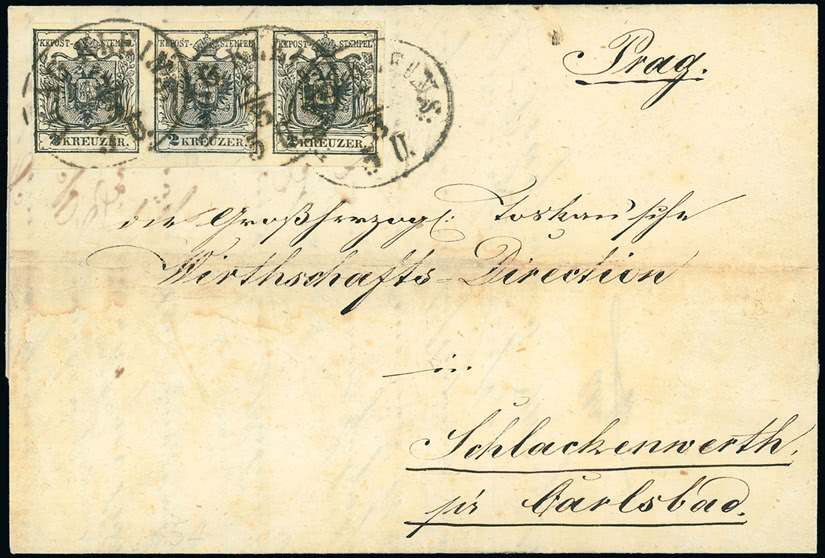 KKPOST-STEMPEL KKPOST-STEMPEL KKPOST-STEMPEL
2 KREUZER. 2 KREUZER. 2 KREUZER.
Prag.
die Großherzogl: Toskan'sche
Wirthschafts-Direction
in
Schlackenwerth,
pr Carlsbad.